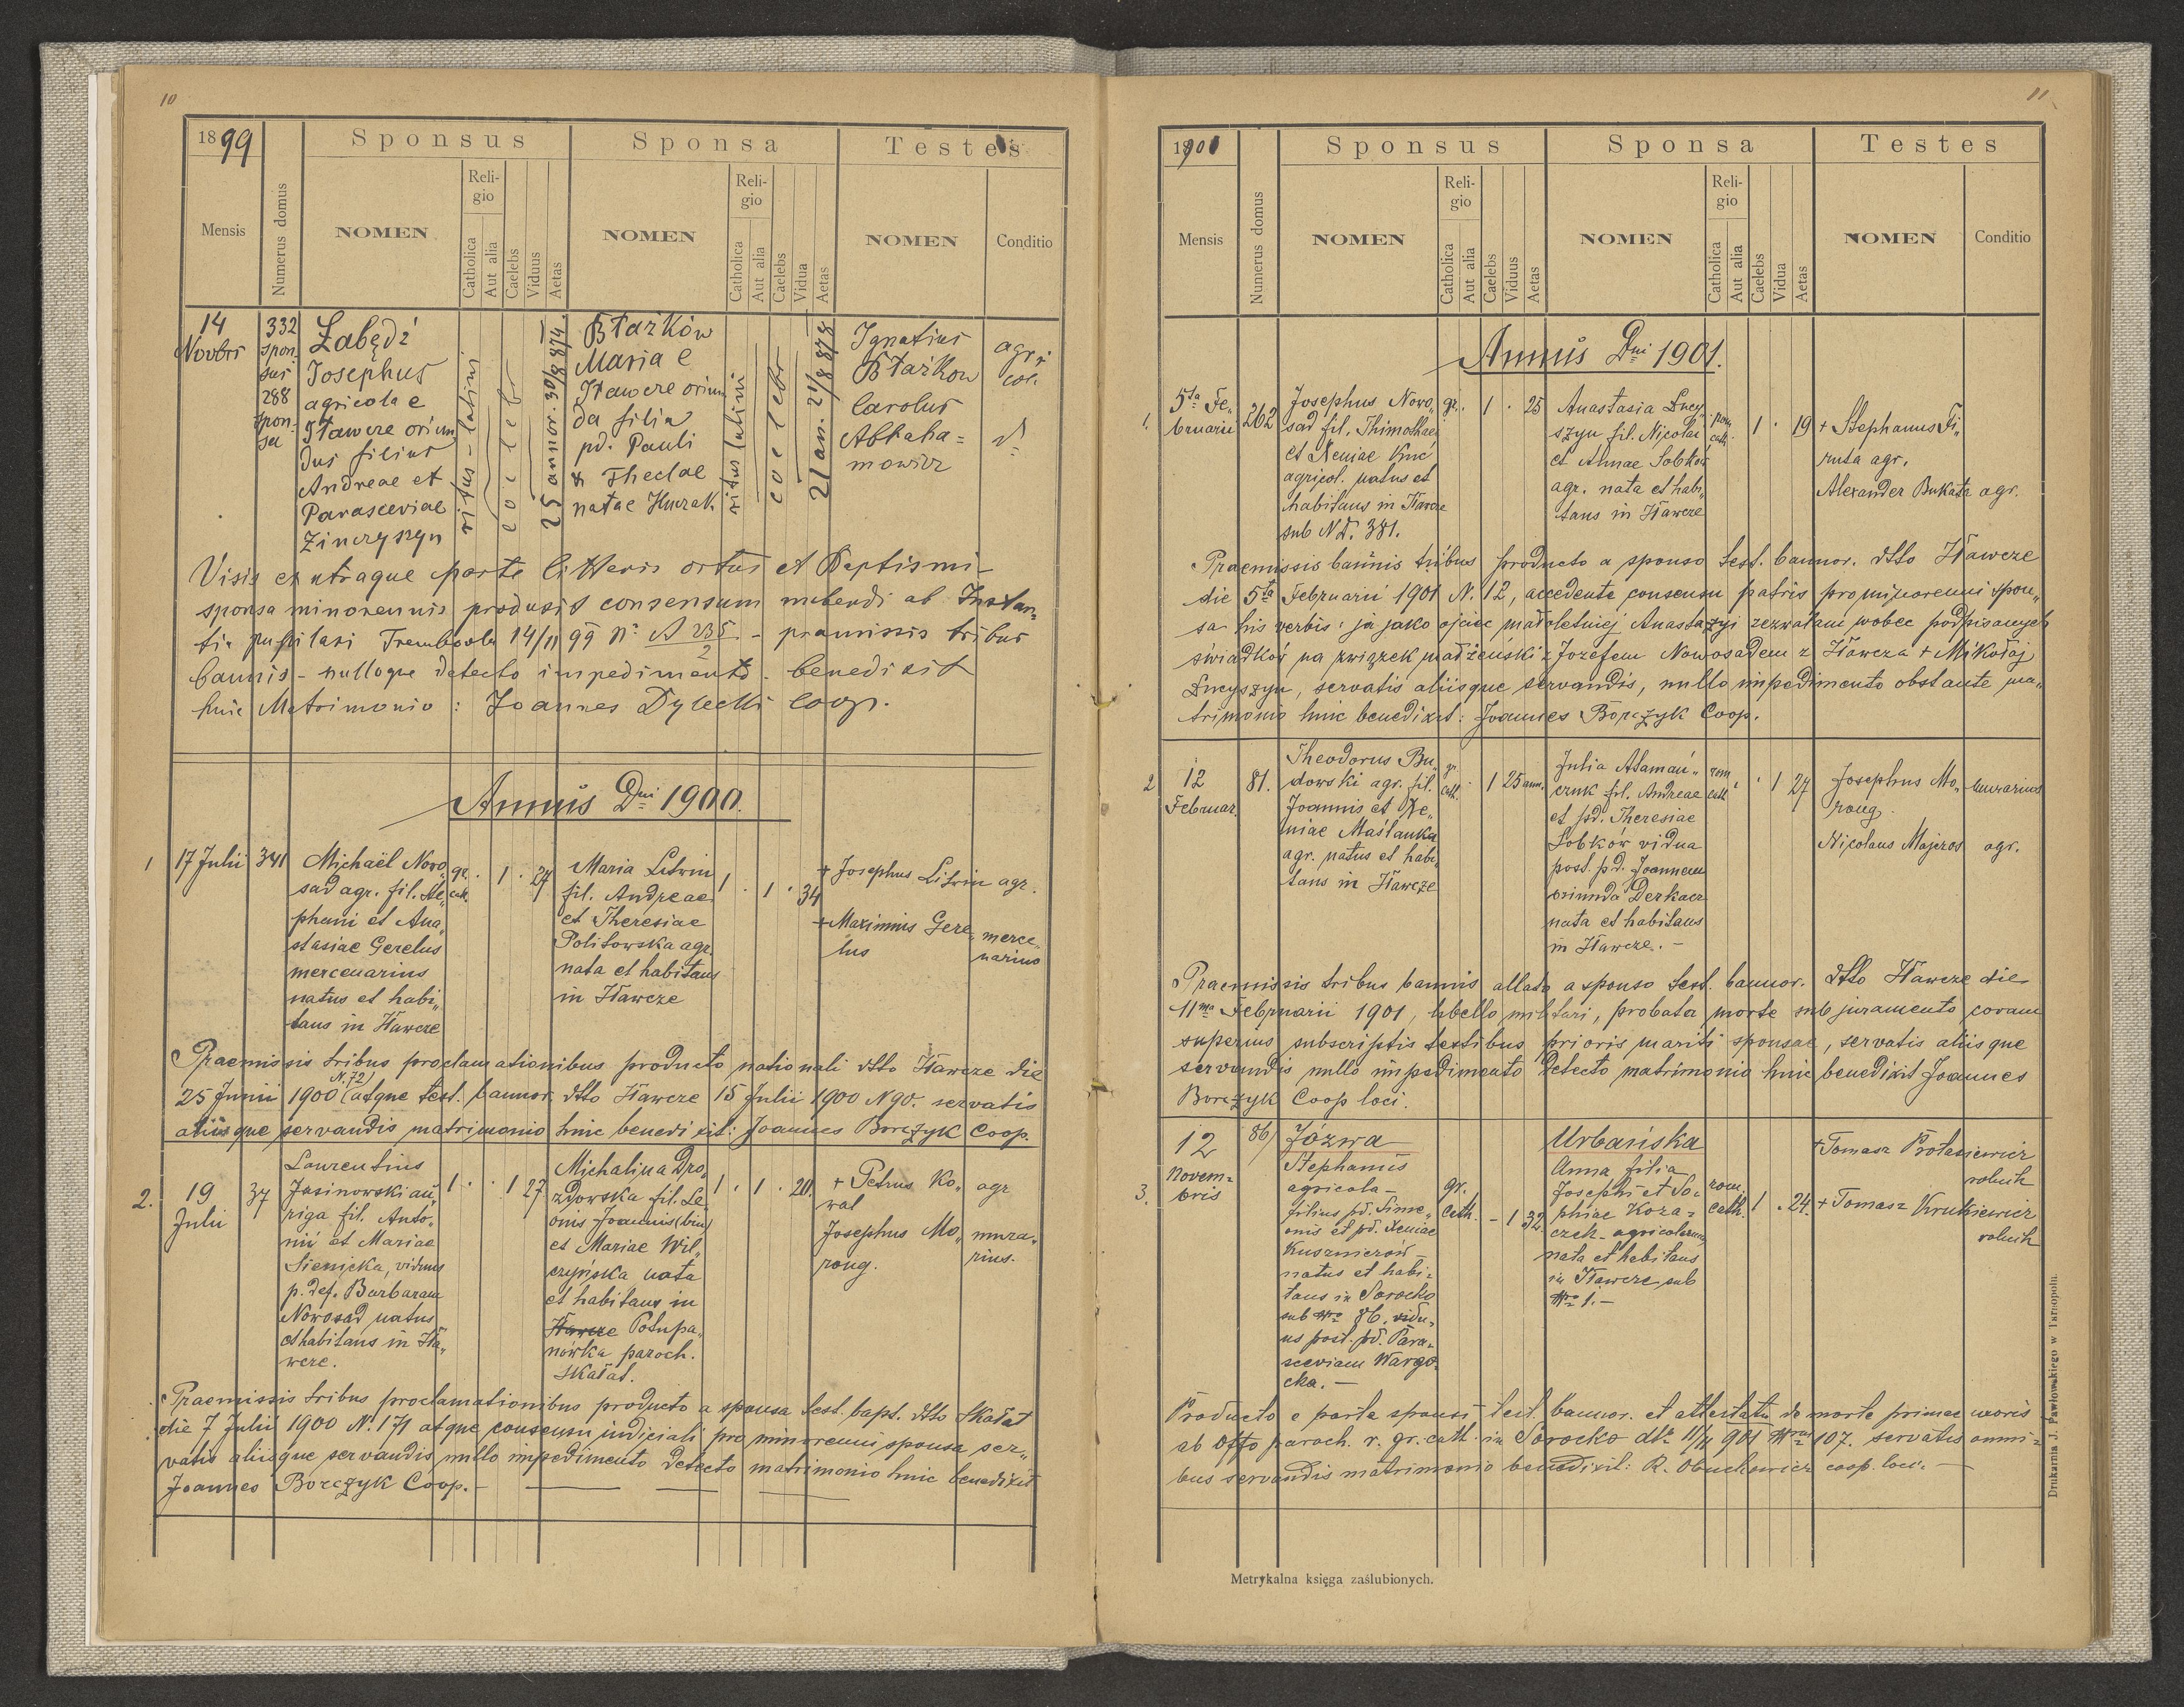 10
1899
Sponsus
Sponsa
Testes
Mensis
Numerus domus
NOMEN
Religio
Catholica
Aut alia
Caelebs
Viduus
Aetas
NOMEN
Religio
Catholica
Aut alia
Caelebs
Vidua
Aetas
NOMEN
Conditio
14
Novbris
332
spon
sus
288
spon
sa
Łabędź
Josephus
agricola e
Iławcze oriun
dus filius
Andreae et
Parasceviae
Zinczyszyn
ritus - latini
coelebs
25 annor. 30/8 874.
Błażków
Maria e
Iławcze oriun
da filia
pd. Pauli
& Theclae
natae Kurzak
ritus latini
coelebs
21 an. 21/8 878
Ignatius
Błażkow
Carolus
Abraha=
mowicz
agri
col.
Visis ex utraque parte litteris ortus et Baptismi -
sponsa minorennis produxit consensum nubendi ab Instan
tia pupilari Trembowla 14/11 99 Nr. A 235/2 - pramissis tribus
bannis - nulloque detecto impedimento - benedixit
huic Matrimonio : Joannes Dylecki coop.
Annus Dni 1900.
1
17 Julii
341
Michaël Nowo„
sad agr. fil. Ste„
phani et Ana„
stasiae Gerelus
mercenarius
natus et habi„
tans in Iławcze
gr.
cat.
1
27
Maria Litwin
fil. Andreae
et Theresiae
Politowska agr.
nata et habitans
in Iławcze
1
1
34
+ Josephus Litwin agr.
+ Maximus Gere„
lus
merce„
narius
Praemissis tribus proclamationibus producto nationali dtto Iławcze die
25 Junii 1900 (N. 72) atque test. bannor. dtto Iławcze 15 Julii 1900 N 90. servatis
aliisque servandis matrimonio huic benedixit: Joannes Borczyk Coop.
2.
19
Julii
37
Laurentius
Jasinowski au„
riga fil. Anto„
nii et Mariae
Sienicka, viduus
p. def. Barbaram
Nowosad natus
et habitans in Iła„
wcze.
1
1
27
Michalina Dro„
zdowska fil. Le„
onis Joannis (bin)
et Mariae Wil„
czyńska nata
et habitans in
Iławcze Połupa„
nówka paroch.
Skałat.
1
1
20
+ Petrus Ko„
wal
agr
Josephus Mo„
roug.
mura„
rius.
Praemissis tribus proclamationibus producto a sponsa test. bapt. dtto Skałat
die 7 Julii 1900 N. 171 atque consensu iudiciali pro minorenni sponsa ser„
vatis aliisque servandis nullo impedimento detecto matrimonio huic benedixit
Joannes Borczyk Coop.
11
1901
Sponsus
Sponsa
Testes
Mensis
Numerus domus
NOMEN
Religio
Catholica
Aut alia
Caelebs
Viduus
Aetas
NOMEN
Religio
Catholica
Aut alia
Caelebs
Vidua
Aetas
NOMEN
Conditio
Annus Dni 1901.
1.
5ta Fe„
bruarii
262
Josephus Nowo„
sad fil. Thimothaei
et Xeniae Kuc
agricol. natus et
habitans in Iławcze
sub N. D. 381.
gr.
1
25
Anastasia Łucy„
szyn fil. Nicolai
et Annae Sobków
agr. nata et habi„
tans in Iławcze
rom
cath.
1
19
+ Stephanus Fi„
ruta agr.
Alexander Bukata agr.
Praemissis bannis tribus producto a sponso test. bannor. dtto Iławcze
die 5ta Februarii 1901 N. 12, accedente consensu patris pro minorenni spon„
sa his verbis: ja jako ojciec małoletniej Anastazyi zezwalam wobec podpisanych
świadków na związek małżeński z Józefem Nowosadem z Iławcza + Mikołaj
Łucyszyn, servatis aliisque servandis, nullo impedimento obstante ma„
trimonio huic benedixit: Joannes Borczyk Coop.
2
12
Februar.
81.
Theodorus Bu„
dowski agr. fil.
Joannis et Xe„
niae Maślanka
agr. natus et habi„
tans in Iławcze
gr.
cath.
1
25 ann.
Julia Ataman„
czuk fil. Andreae
et pd. Theresiae
Sobków vidua
post. pd. Joannem
oriunda Derkacz
nata et habitans
in Iławcze. -
rom
cath
1
27
Josephus Mo„
roug
murarius
Nicolaus Majcros agr.
Praemissis tribus bannis allato a sponso test. bannor. dtto Iławcze die
11ma Februarii 1901, libello militari, probata morte sub juramento coram
superius subscriptis testibus prioris mariti sponsae, servatis aliisque
servandis nullo impedimento detecto matrimonio huic benedixit Joannes
Borczyk Coop loci.
3.
12
Novem=
bris
86/
Józwa
Stephanus
agricola -
filius pd. Sime„
onis et pd. Xeniae
Kuszmierów -
natus et habi=
tans in Sorocko
sub Nro 86. vidu„
us post. pd. Para„
sceviam Wargo„
cka. -
gr.
cath.
- 1
32
Urbańska
Anna filia
Josephi et So„
phiae Koza=
czek - agricolarum
nata et habitans
in Iławcze sub
Nro 1. -
rom.
cath.
1
24.
+ Tomasz Protasiewicz
rolnik
+ Tomasz Krukiewicz
rolnik
Producto e parte sponsi test. bannor. et attestatu de morte primae uxoris
ab Offo paroch. r. gr. cath. in Sorocko dto 11/11 901 Nro 107. servatis omni=
bus servandis matrimonio benedixit: R. Obuchowicz coop. loci. -
Metrykalna księga zaślubionych.
Drukarnia J. Pawłowskiego w Tarnopolu.